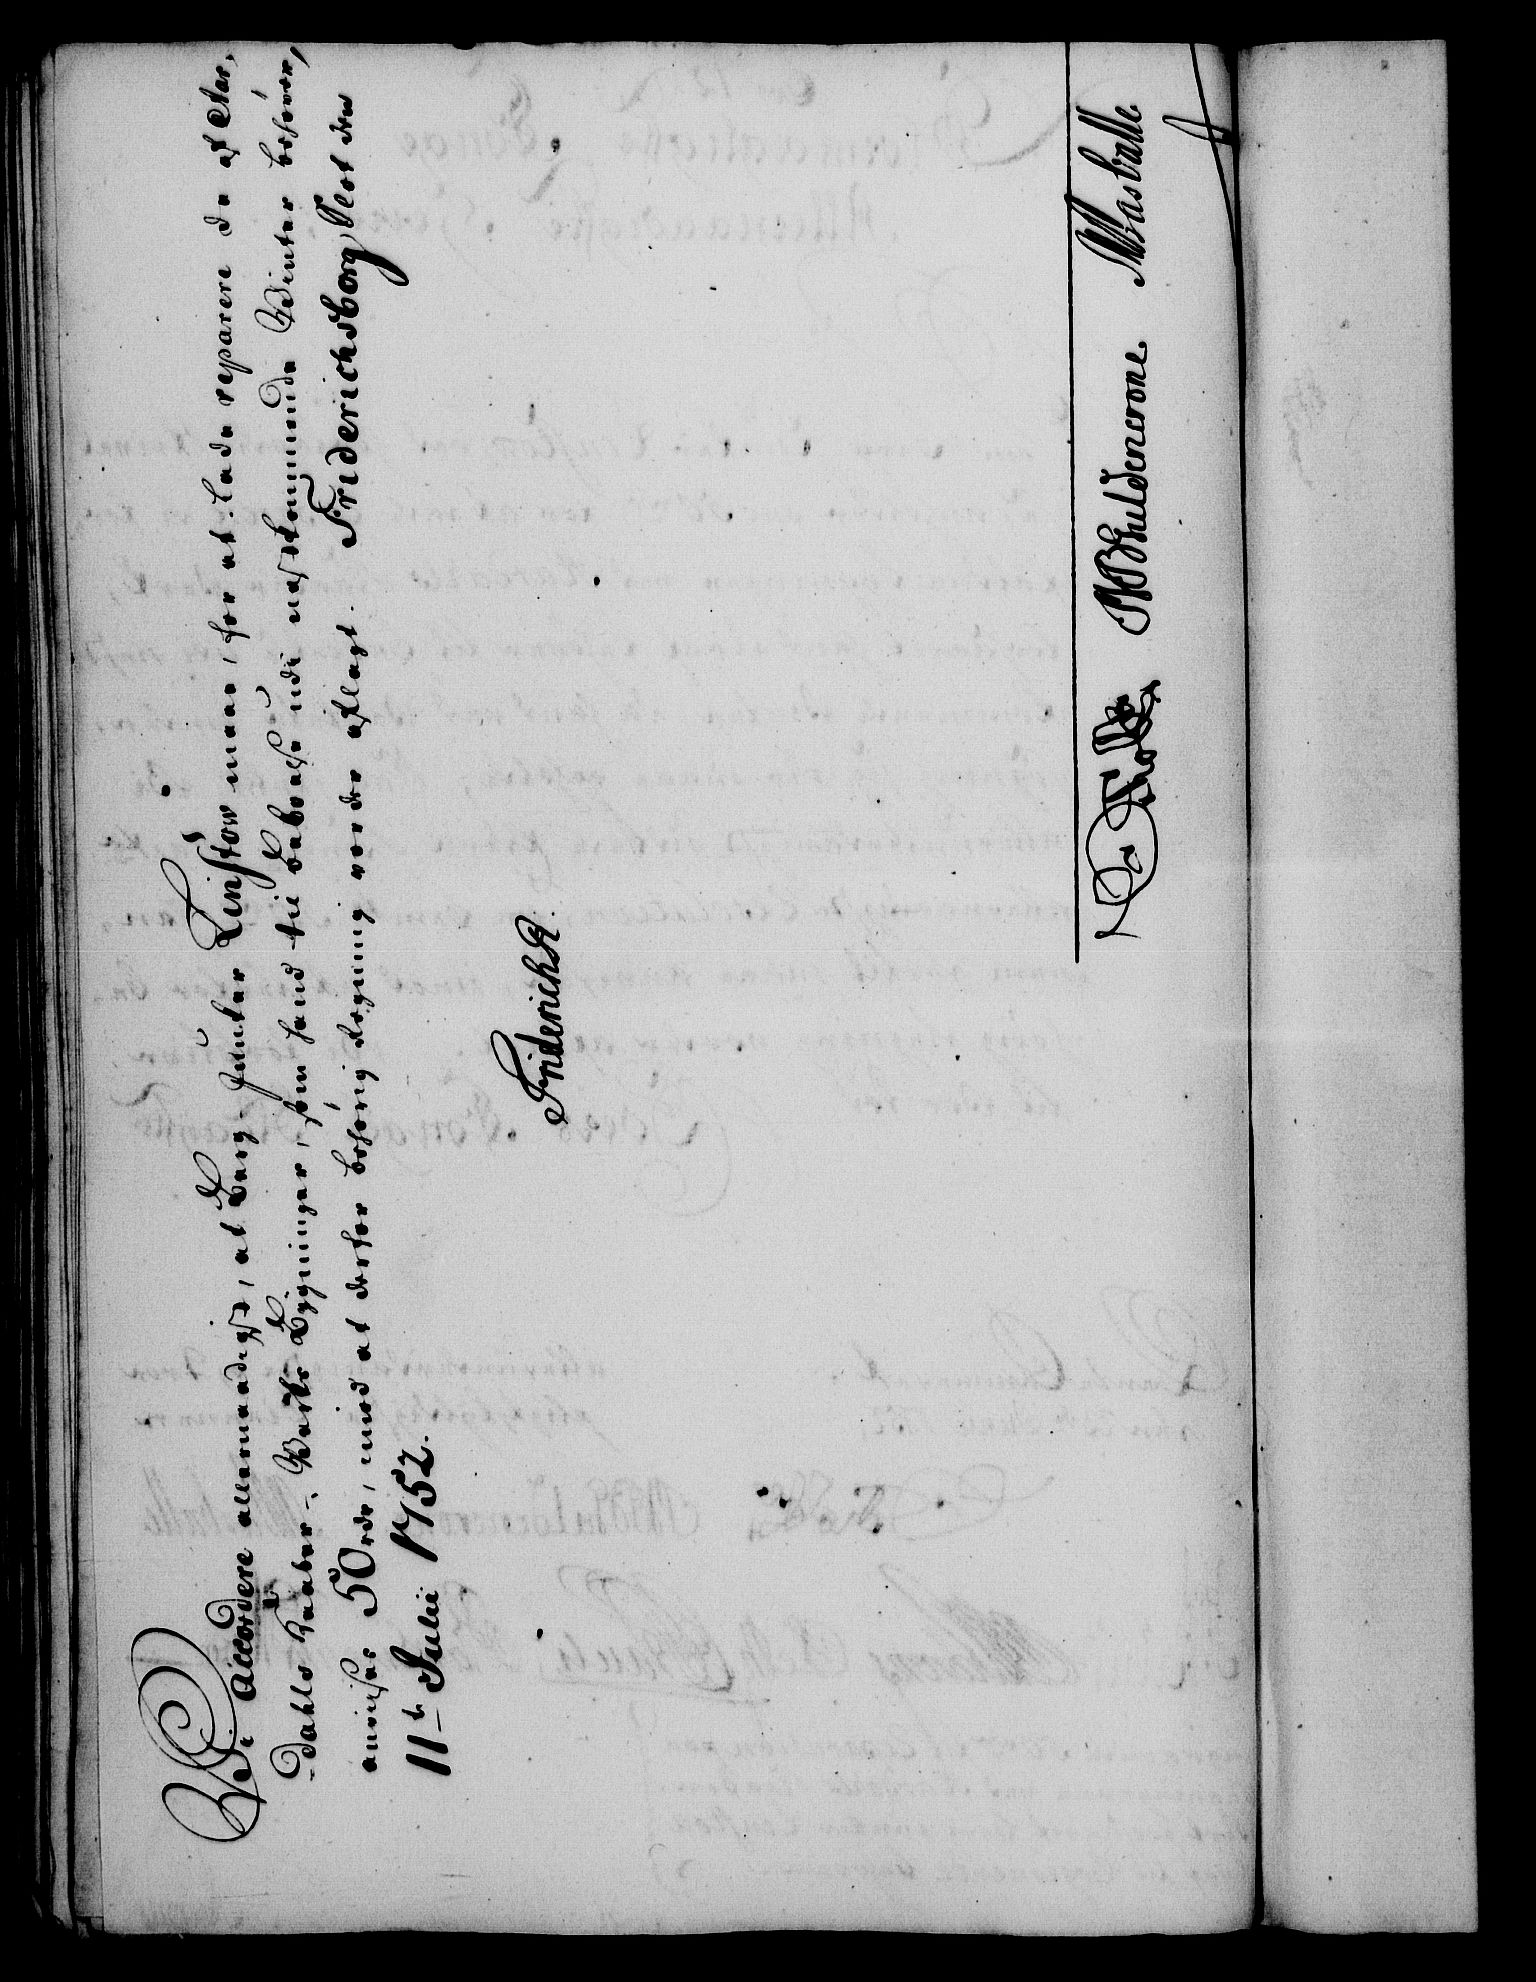 Vi accordere allernaadigst, at Berg-Junker Linstow maae, for at lade reparere de af Aar-
-dahls Kaaber-Verks Bygninger, som hand til Beboelse udi næstkommende Vinter behöver,
anvises 50 rdr, mod at derfor behörig Regning vorder aflagt. Friderichsborg Slot den
11te Julii 1752.
Friderich R.
Holstein JBGuldencrone. Masballe.